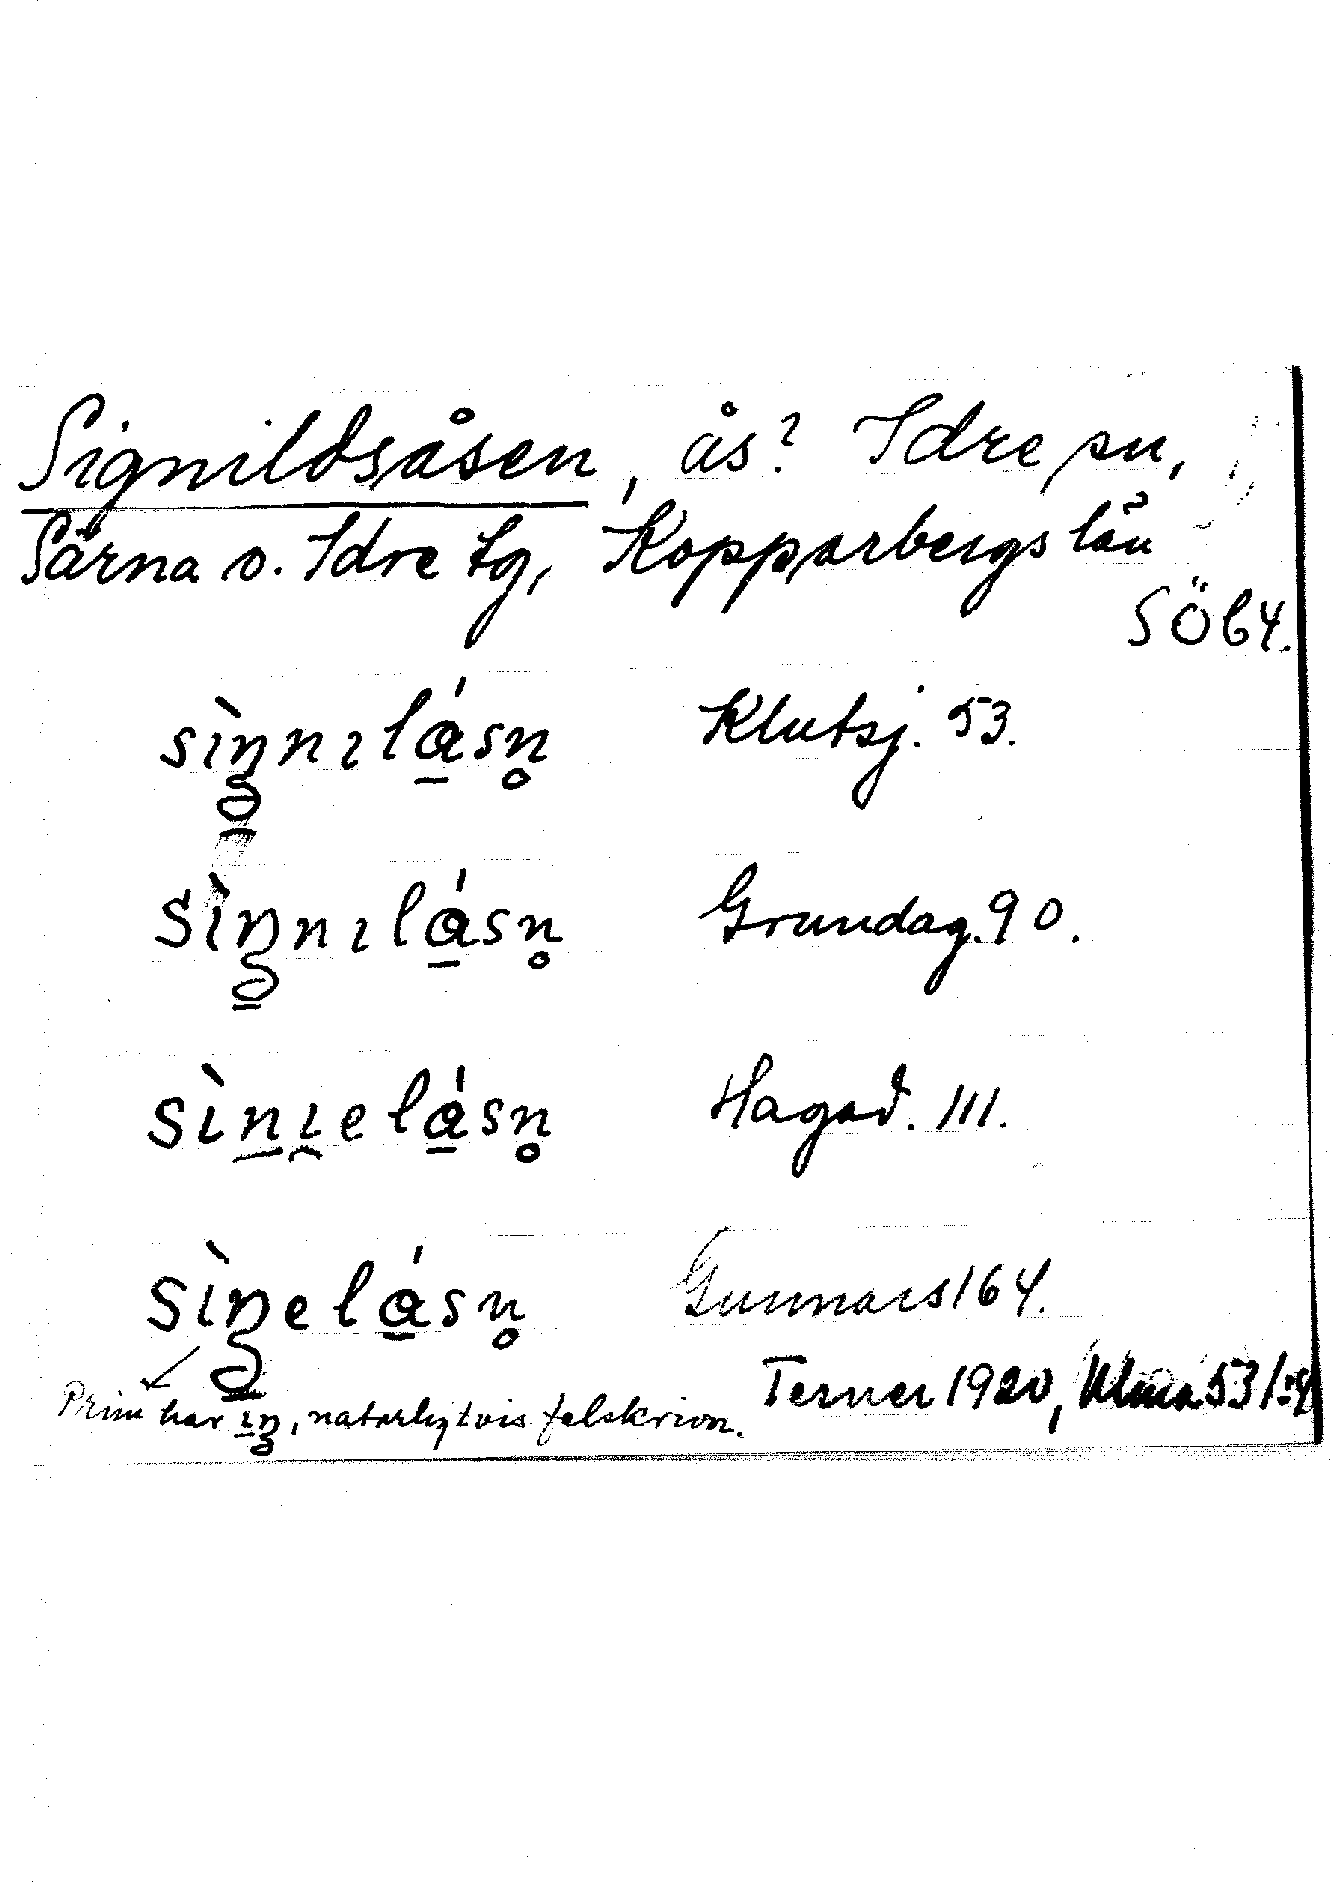 Signildsåsen, ås? Idre sn,
Särna o. Idre tg, Kopparbergs län
SÖ64.
sìŋnılásn̥ Klutsj. 53.
sìŋnılásn̥ Grundag. 90.
sìnı̯elásn̥ Hagad. 111.
sìŋelásn̥ Gunnars 164.
Terner 1920, Ulma 53/
Prim har ıŋ, naturligtvis felskrivn.